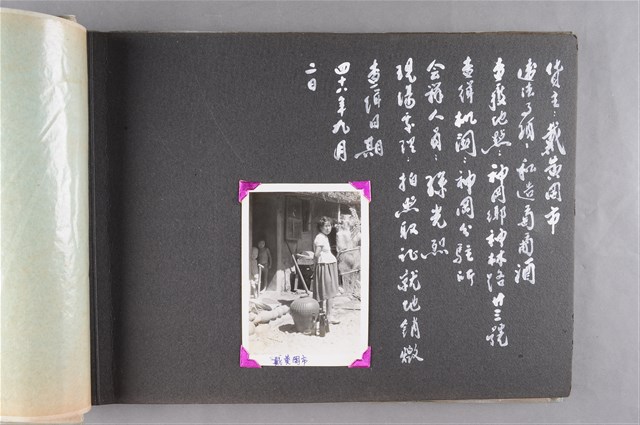 貨主：戴黃岡市
違法事項：私造葡萄酒
查獲地點：神岡鄉神林路廿三號
查緝机関：神岡分駐所
会辦人員：孫光
現場處理：拍照取証就地銷燬
查緝日期
四十六年九月
二日
戴黃岡市